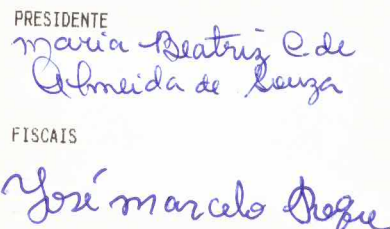 PRESIDENTE
Maria Beatriz C. de
Almeida de Souza
FISCAIS
José Marcelo